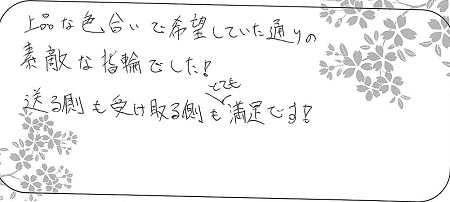 上品な色合いで希望していた通りの
素敵な指輪でした!
送る側も受け取る側もとても満足です!